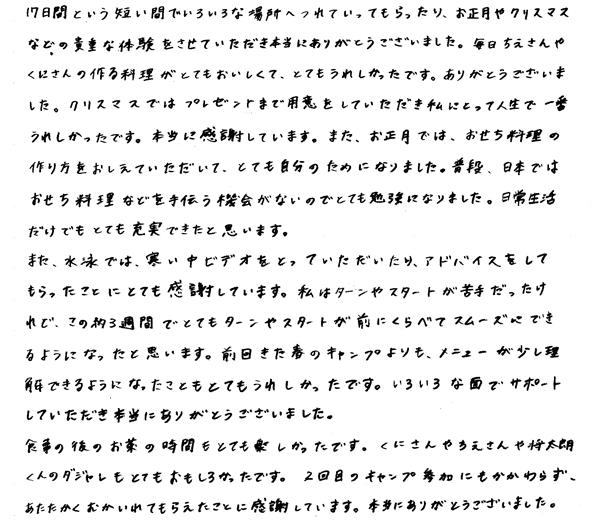 17日間という短い間でいろいろな場所へつれていってもらったり、お正月やクリスマス
などの貴重な体験をさせていただき本当にありがとうございました。毎日ちえさんや
くにさんの作る料理がとてもおいしくて、とてもうれしかったです。ありがとうございま
した。クリスマスではプレゼントまで用意をしていただき私にとって人生で一番
うれしかったです。本当に感謝しています。また、お正月では、おせち料理の
作り方をおしえていただいて、とても自分のためになりました。普段、日本では
おせち料理などを手伝う機会がないのでとても勉強になりました。日常生活
だけでもとても充実できたと思います。
また、水泳では、寒い中ビデオをとっていただいたり、アドバイスをして
もらったことにとても感謝しています。私はターンやスタートが苦手だったけ
れど、この約3週間でとてもターンやスタートが前にくらべてスムーズにでき
るようになったと思います。前回きた春のキャンプよりも、メニューが少し理
解できるようになったこともとてもうれしかったです。いろいろな面でサポート
していただき本当にありがとうございました。
食事の後のお茶の時間もとても楽しかったです。くにさんやちえさんや将太朗
くんのダジャレもとてもおもしろかったです。2回目のキャンプ参加にもかかわらず、
あたたかくおかいれてもらえたことに感謝しています。本当にありがとうございました。